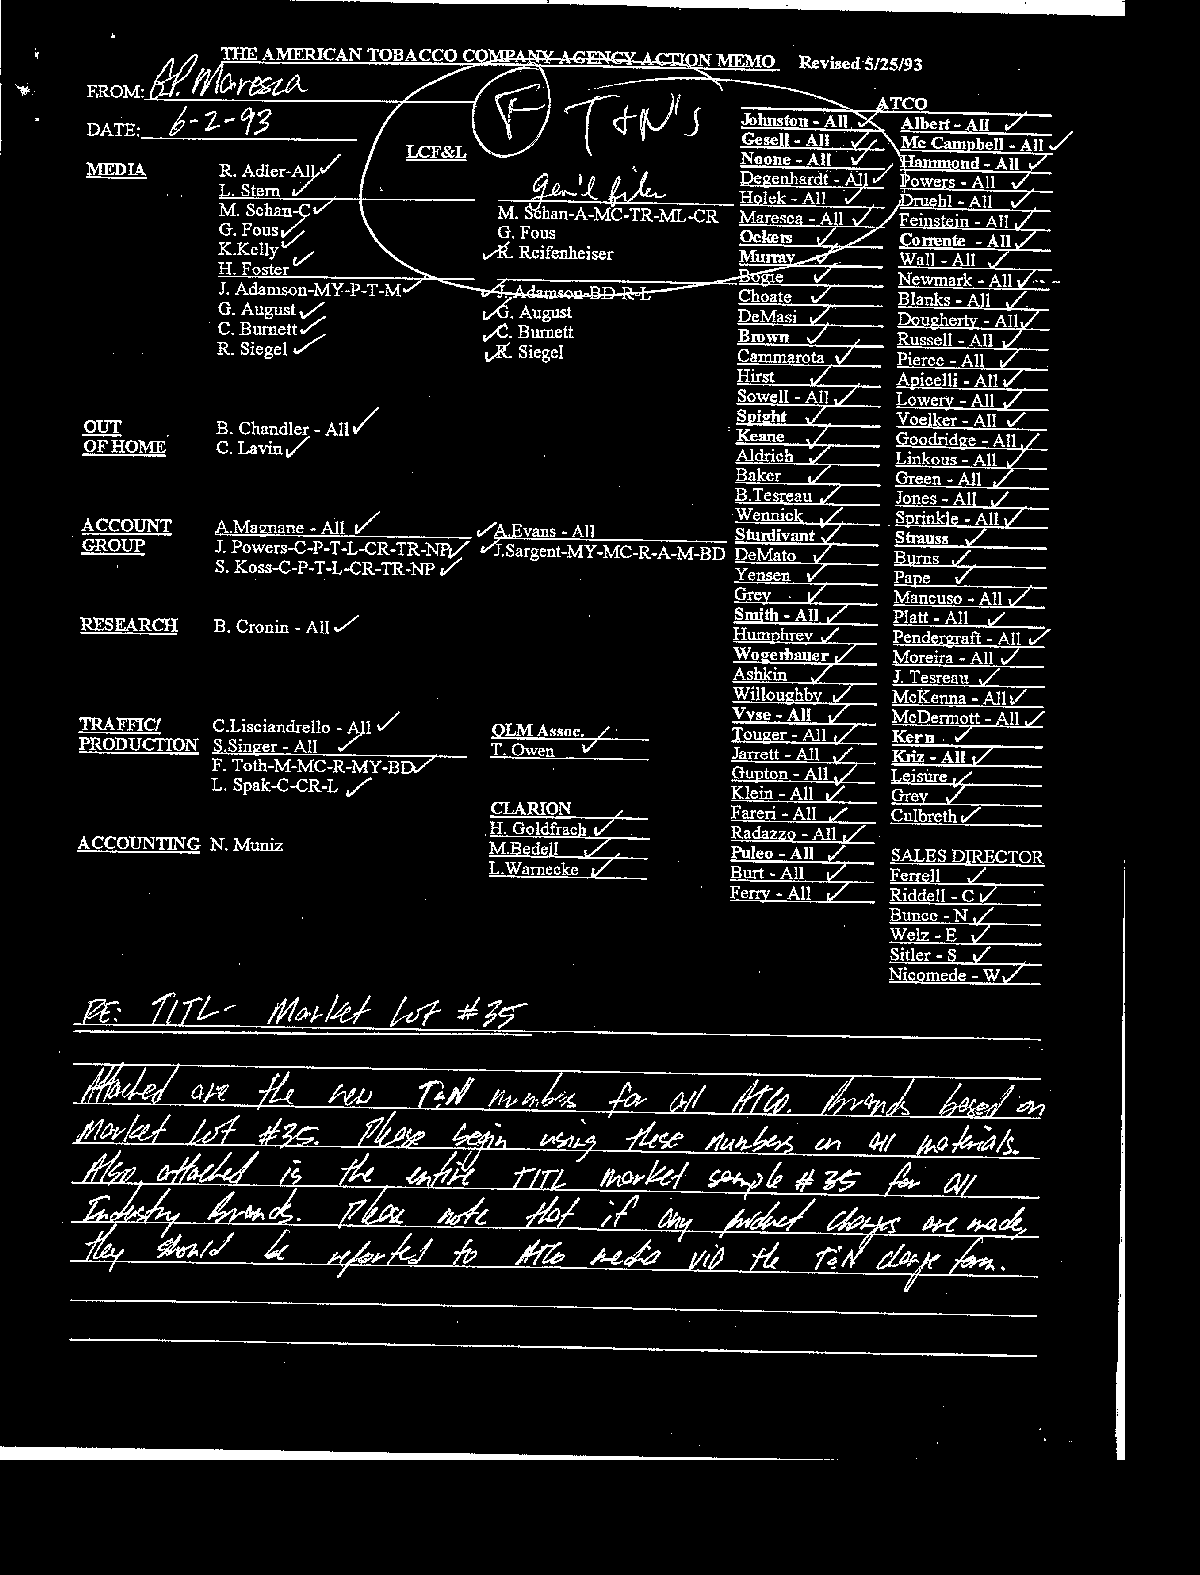 THE AMERICAN TOBACCO COMPANY AGENCY ACTION MEMO Revised 5/25/93
FROM: Maresca
DATE: 6-2-93
F T&N's
gen'l files
LCF&L
MEDIA
R. Adler-All
L. Stern
M. Schan-C
G. Fous
K.Kelly
H. Foster
J. Adamson-MY-P-T-M
G. August
C. Burnett
R. Siegel
M. Schan-A-MC-TR-ML-CR
G. Fous
K. Reifenheiser
J. Adamson-BD-R-L
G. August
C. Burnett
R. Siegel
OUT
OF HOME
B. Chandler - All
C. Lavin
ACCOUNT
GROUP
A.Magnane - All
J. Powers-C-P-T-L-CR-TR-NP
S. Koss-C-P-T-L-CR-TR-NP
A.Evans - All
J.Sargent-MY-MC-R-A-M-BD
RESEARCH
B. Cronin - All
TRAFFIC/
PRODUCTION
C.Lisciandrello - All
S.Singer - All
F. Toth-M-MC-R-MY-BD
L. Spak-C-CR-L
OLM Assoc.
T. Owen
CLARION
H. Goldfrach
M.Bedell
L.Warnecke
ACCOUNTING N. Muniz
ATCO
Johnston - All
Gesell - All
Noone - All
Degenhardt - All
Holek - All
Maresca - All
Ockers
Murray
Bogie
Choate
DeMasi
Brown
Cammarota
Hirst
Sowell - All
Spight
Keane
Aldrich
Baker
B.Tesreau
Wennick
Sturdivant
DeMato
Yensen
Grey
Smith - All
Humphrey
Wogerbauer
Ashkin
Willoughby
Vyse - All
Touger - All
Jarrett - All
Gupton - All
Klein - All
Fareri - All
Radazzo - All
Puleo - All
Burt - All
Ferry - All
Albert - All
Mc Campbell - All
Hammond - All
Powers - All
Druehl - All
Feinstein - All
Corrente - All
Wall - All
Newmark - All
Blanks - All
Dougherty - All
Russell - All
Pierce - All
Apicelli - All
Lowery - All
Voelker - All
Goodridge - All
Linkous - All
Green - All
Jones - All
Sprinkle - All
Strauss
Burns
Pape
Mancuso - All
Platt - All
Pendergraft - All
Moreira - All
J. Tesreau
McKenna - All
McDermott - All
Kern
Kriz - All
Leisure
Grey
Culbreth
SALES DIRECTOR
Ferrell
Riddell - C
Bunce - N
Welz - E
Sitler - S
Nicomede - W
RE: TITL - Market Lot #35
Attached are the new T&N numbers for all ATCo. Brands based on
Market Lot #35. Please begin using these numbers on all materials.
Also, attached is the entire TITL market sample #35 for all
Industry Brands. Please note that if any product changes are made,
they should be reported to ATCo media via the T&N change form.